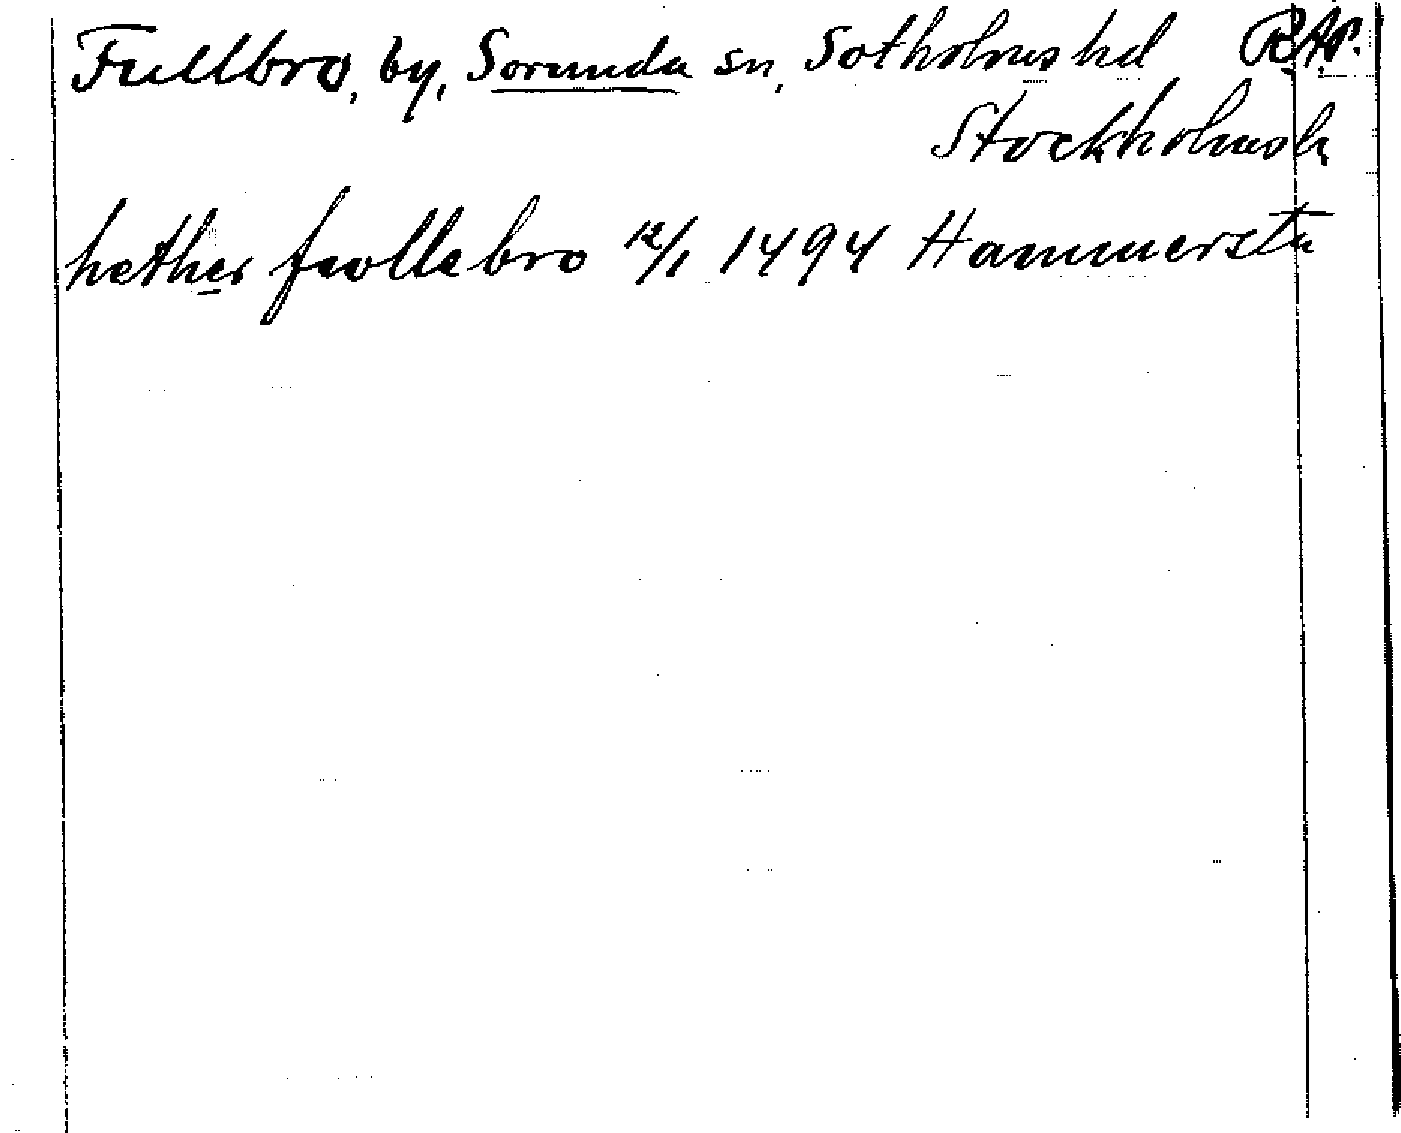 Fullbro, by, Sorunda sn, Sotholms hd RAp.
Stockholms l.
hether fwllebro 12/1 1494 Hammersta